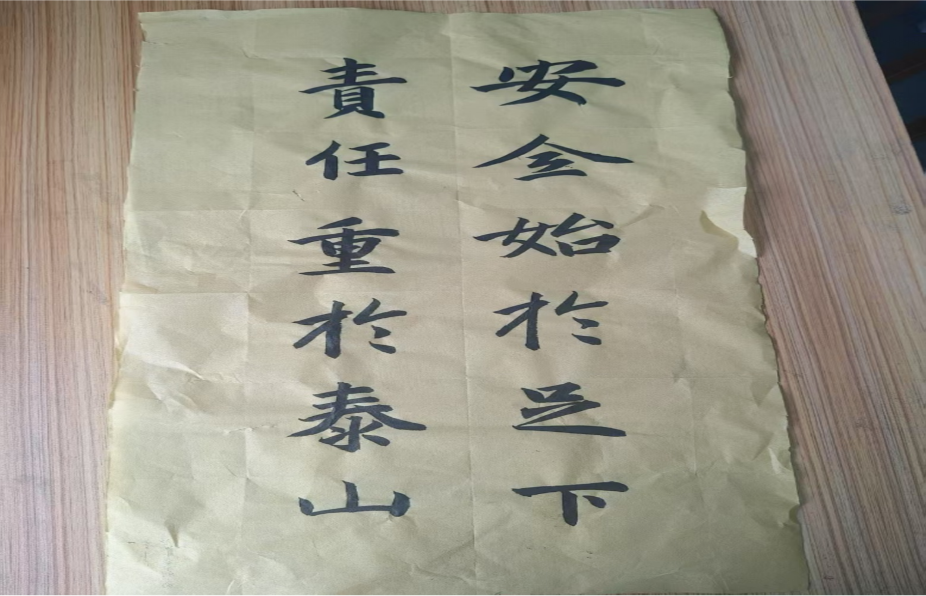 安全始於足下
責任重於泰山